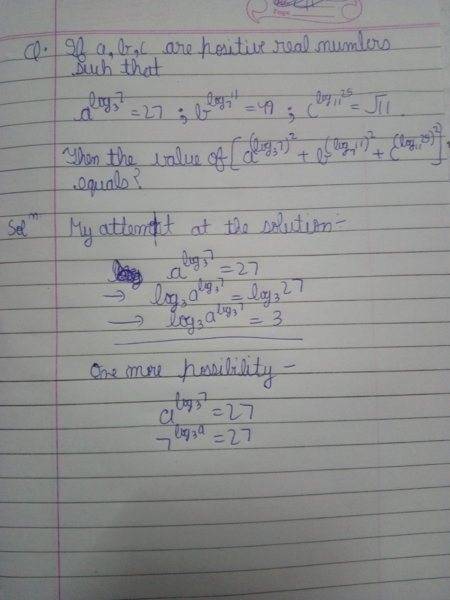 Q. If a, b, c are positive real numbers
such that
a^{log_3 7} = 27 ; b^{log_7 11} = 49 ; c^{log_11 25} = √11.
Then the value of [a^{(log_3 7)^2} + b^{(log_7 11)^2} + c^{(log_11 25)^2}]
equals?
Sol^n My attempt at the solution:-
a^{log_3 7} = 27
→ log_3 a^{log_3 7} = log_3 27
→ log_3 a^{log_3 7} = 3
One more possibility -
a^{log_3 7} = 27
7^{log_3 a} = 27